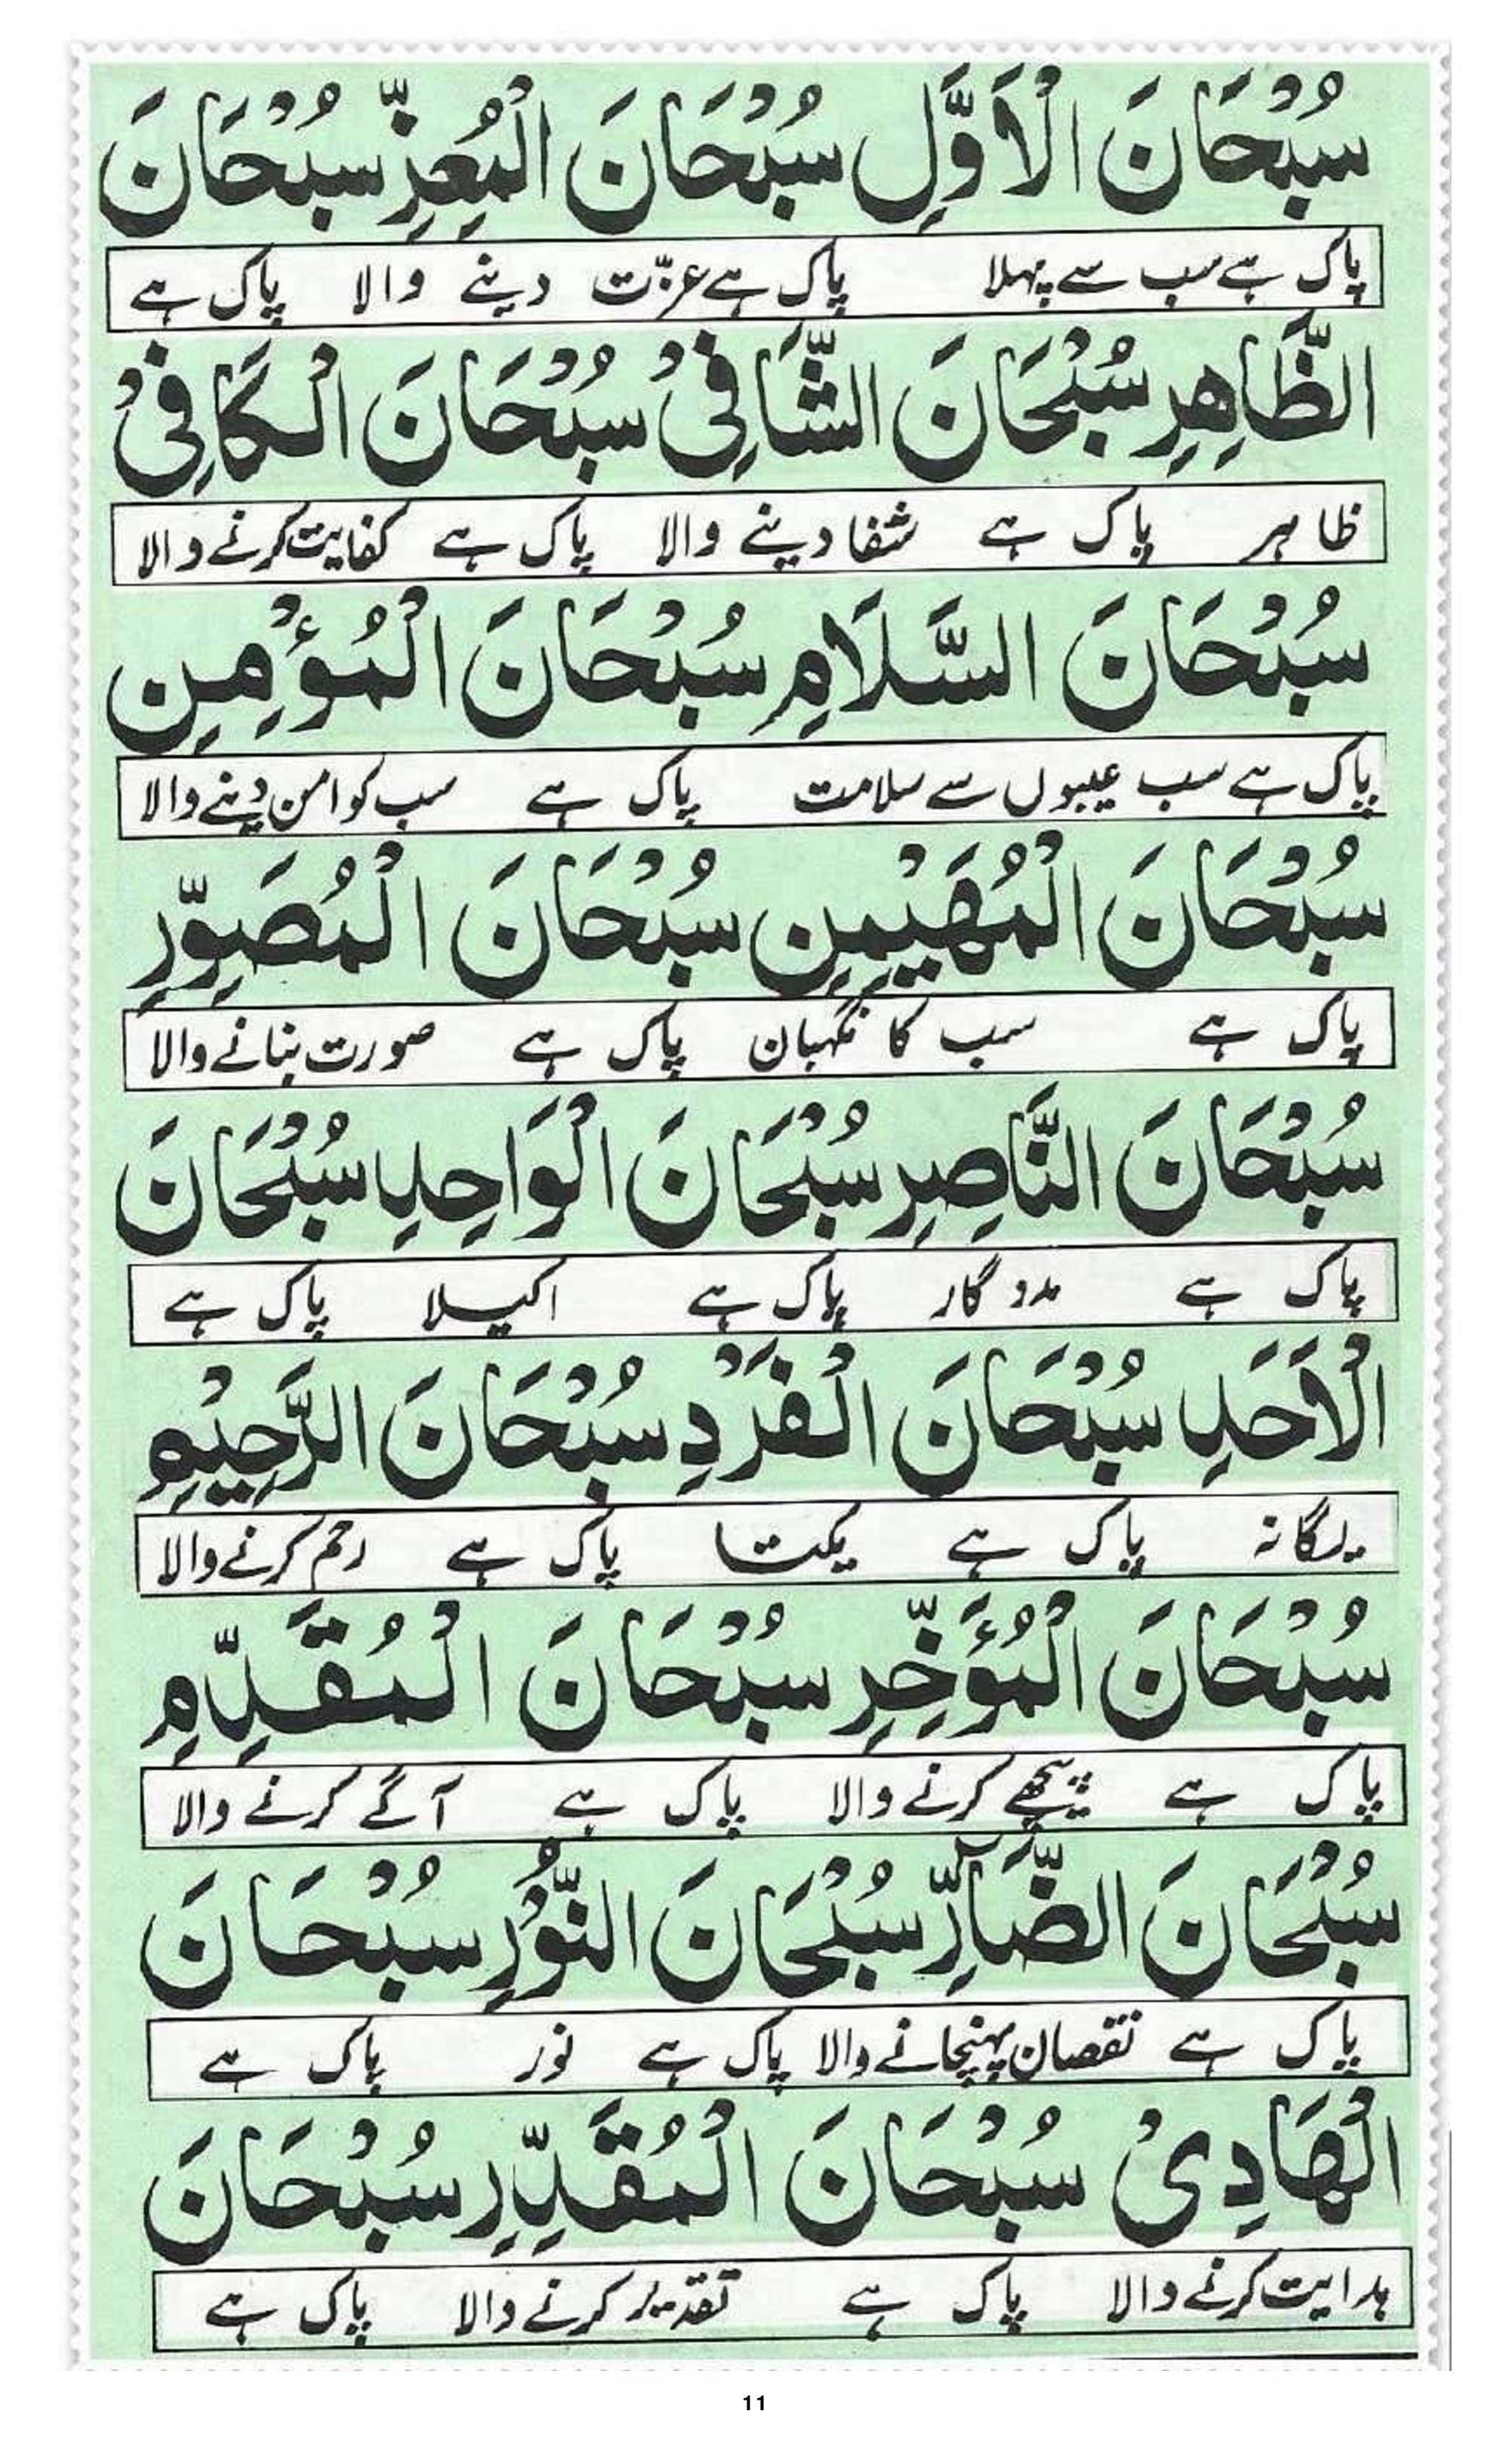 سُبْحَانَ الْاَوَّلِ سُبْحَانَ الْمُعِزِّ سُبْحَانَ
پاک ہے سب سے پہلا پاک ہے عزّت دینے والا پاک ہے
الظَّاهِرِ سُبْحَانَ الشَّافِیْ سُبْحَانَ الْکَافِیْ
ظاہر پاک ہے شفا دینے والا پاک ہے کفایت کرنے والا
سُبْحَانَ السَّلَامِ سُبْحَانَ الْمُؤْمِنِ
پاک ہے سب عیبوں سے سلامت پاک ہے سب کو امن دینے والا
سُبْحَانَ الْمُهَيْمِنِ سُبْحَانَ الْمُصَوِّرِ
پاک ہے سب کا نگہبان پاک ہے صورت بنانے والا
سُبْحَانَ النَّاصِرِ سُبْحَانَ الْوَاحِدِ سُبْحَانَ
پاک ہے مددگار پاک ہے اکیلا پاک ہے
الْاَحَدِ سُبْحَانَ الْفَرْدِ سُبْحَانَ الرَّحِيْمِ
یگانہ پاک ہے یکتا پاک ہے رحم کرنے والا
سُبْحَانَ الْمُؤَخِّرِ سُبْحَانَ الْمُقَدِّمِ
پاک ہے پیچھے کرنے والا پاک ہے آگے کرنے والا
سُبْحَانَ الضَّآرِّ سُبْحَانَ النُّوْرِ سُبْحَانَ
پاک ہے نقصان پہنچانے والا پاک ہے نور پاک ہے
الْهَادِیْ سُبْحَانَ الْمُقَدِّرِ سُبْحَانَ
ہدایت کرنے والا پاک ہے تقدیر کرنے والا پاک ہے
11